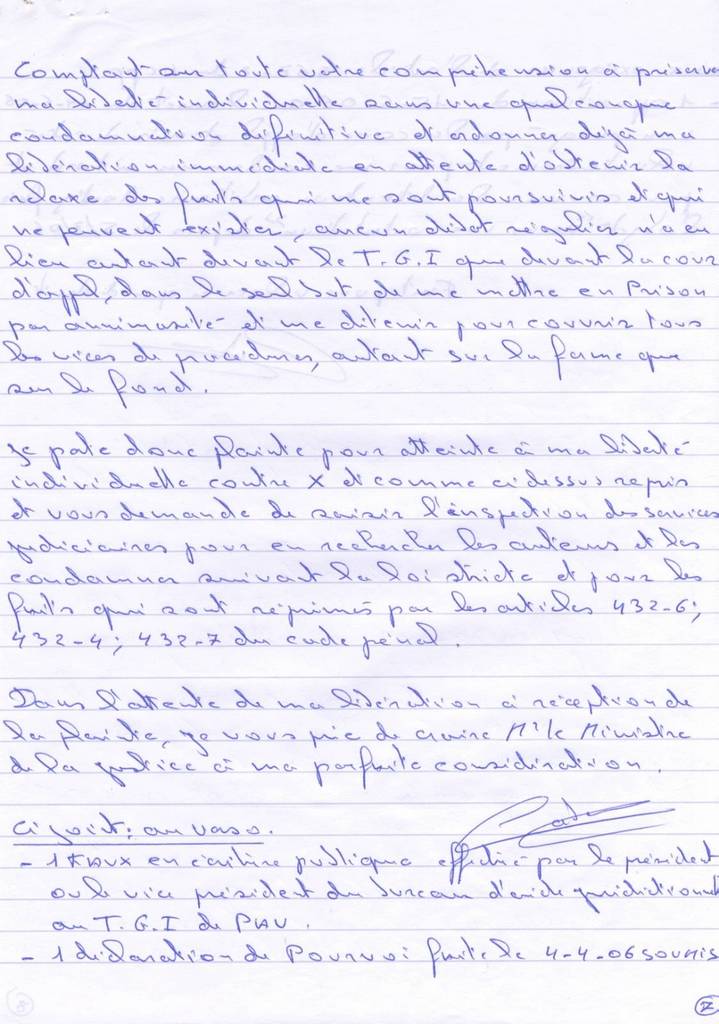 Comptant sur toute votre compréhension à préserver
ma liberté individuelle sans une quelconque
condamnation définitive et ordonner déjà ma
libération immédiate en attente d'obtenir la
relaxe des faits qui me sont poursuivis et qui
ne peuvent exister, aucun débat régulier n'a eu
lieu autant devant le T.G.I que devant la cour
d'appel, dans le seul but de me mettre en Prison
par annimosité et me détenir pour couvrir tous
les vices de procédures, autant sur la forme que
sur le fond.
Je porte donc plainte pour atteinte à ma liberté
individuelle contre X et comme ci dessus repris
et vous demande de saisir l'inspection des services
judiciaires pour en rechercher les auteurs et les
condamner suivant la loi stricte et pour les
faits qui sont réprimés par les articles 432-6;
432-4; 432-7 du code pénal.
Dans l'attente de ma libération à réception de
la plainte, je vous prie de croire Mr le Ministre
de la justice à ma parfaite considération.
Ci joint: au verso.
- 1 Faux en écriture publique effectué par le président
ou le vice président du bureau d'aide juridictionnel
au T.G.I de PAU.
- 1 déclaration de Pourvoi faite le 4-4-06 soumis